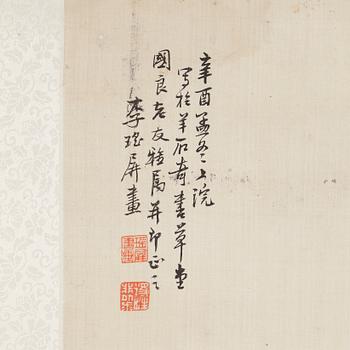 辛酉孟冬上浣
写於羊石奇書草堂
國良老友雅属并即正之
李瑤屏畫